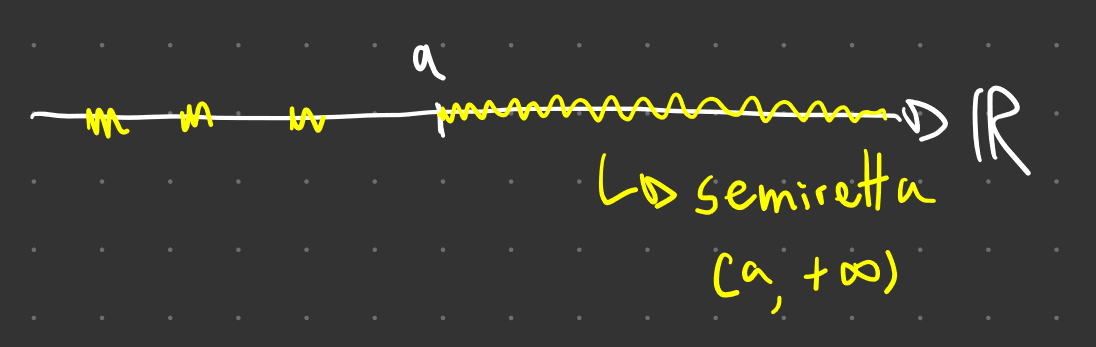 a
ℝ
↳ semiretta
(a, +∞)